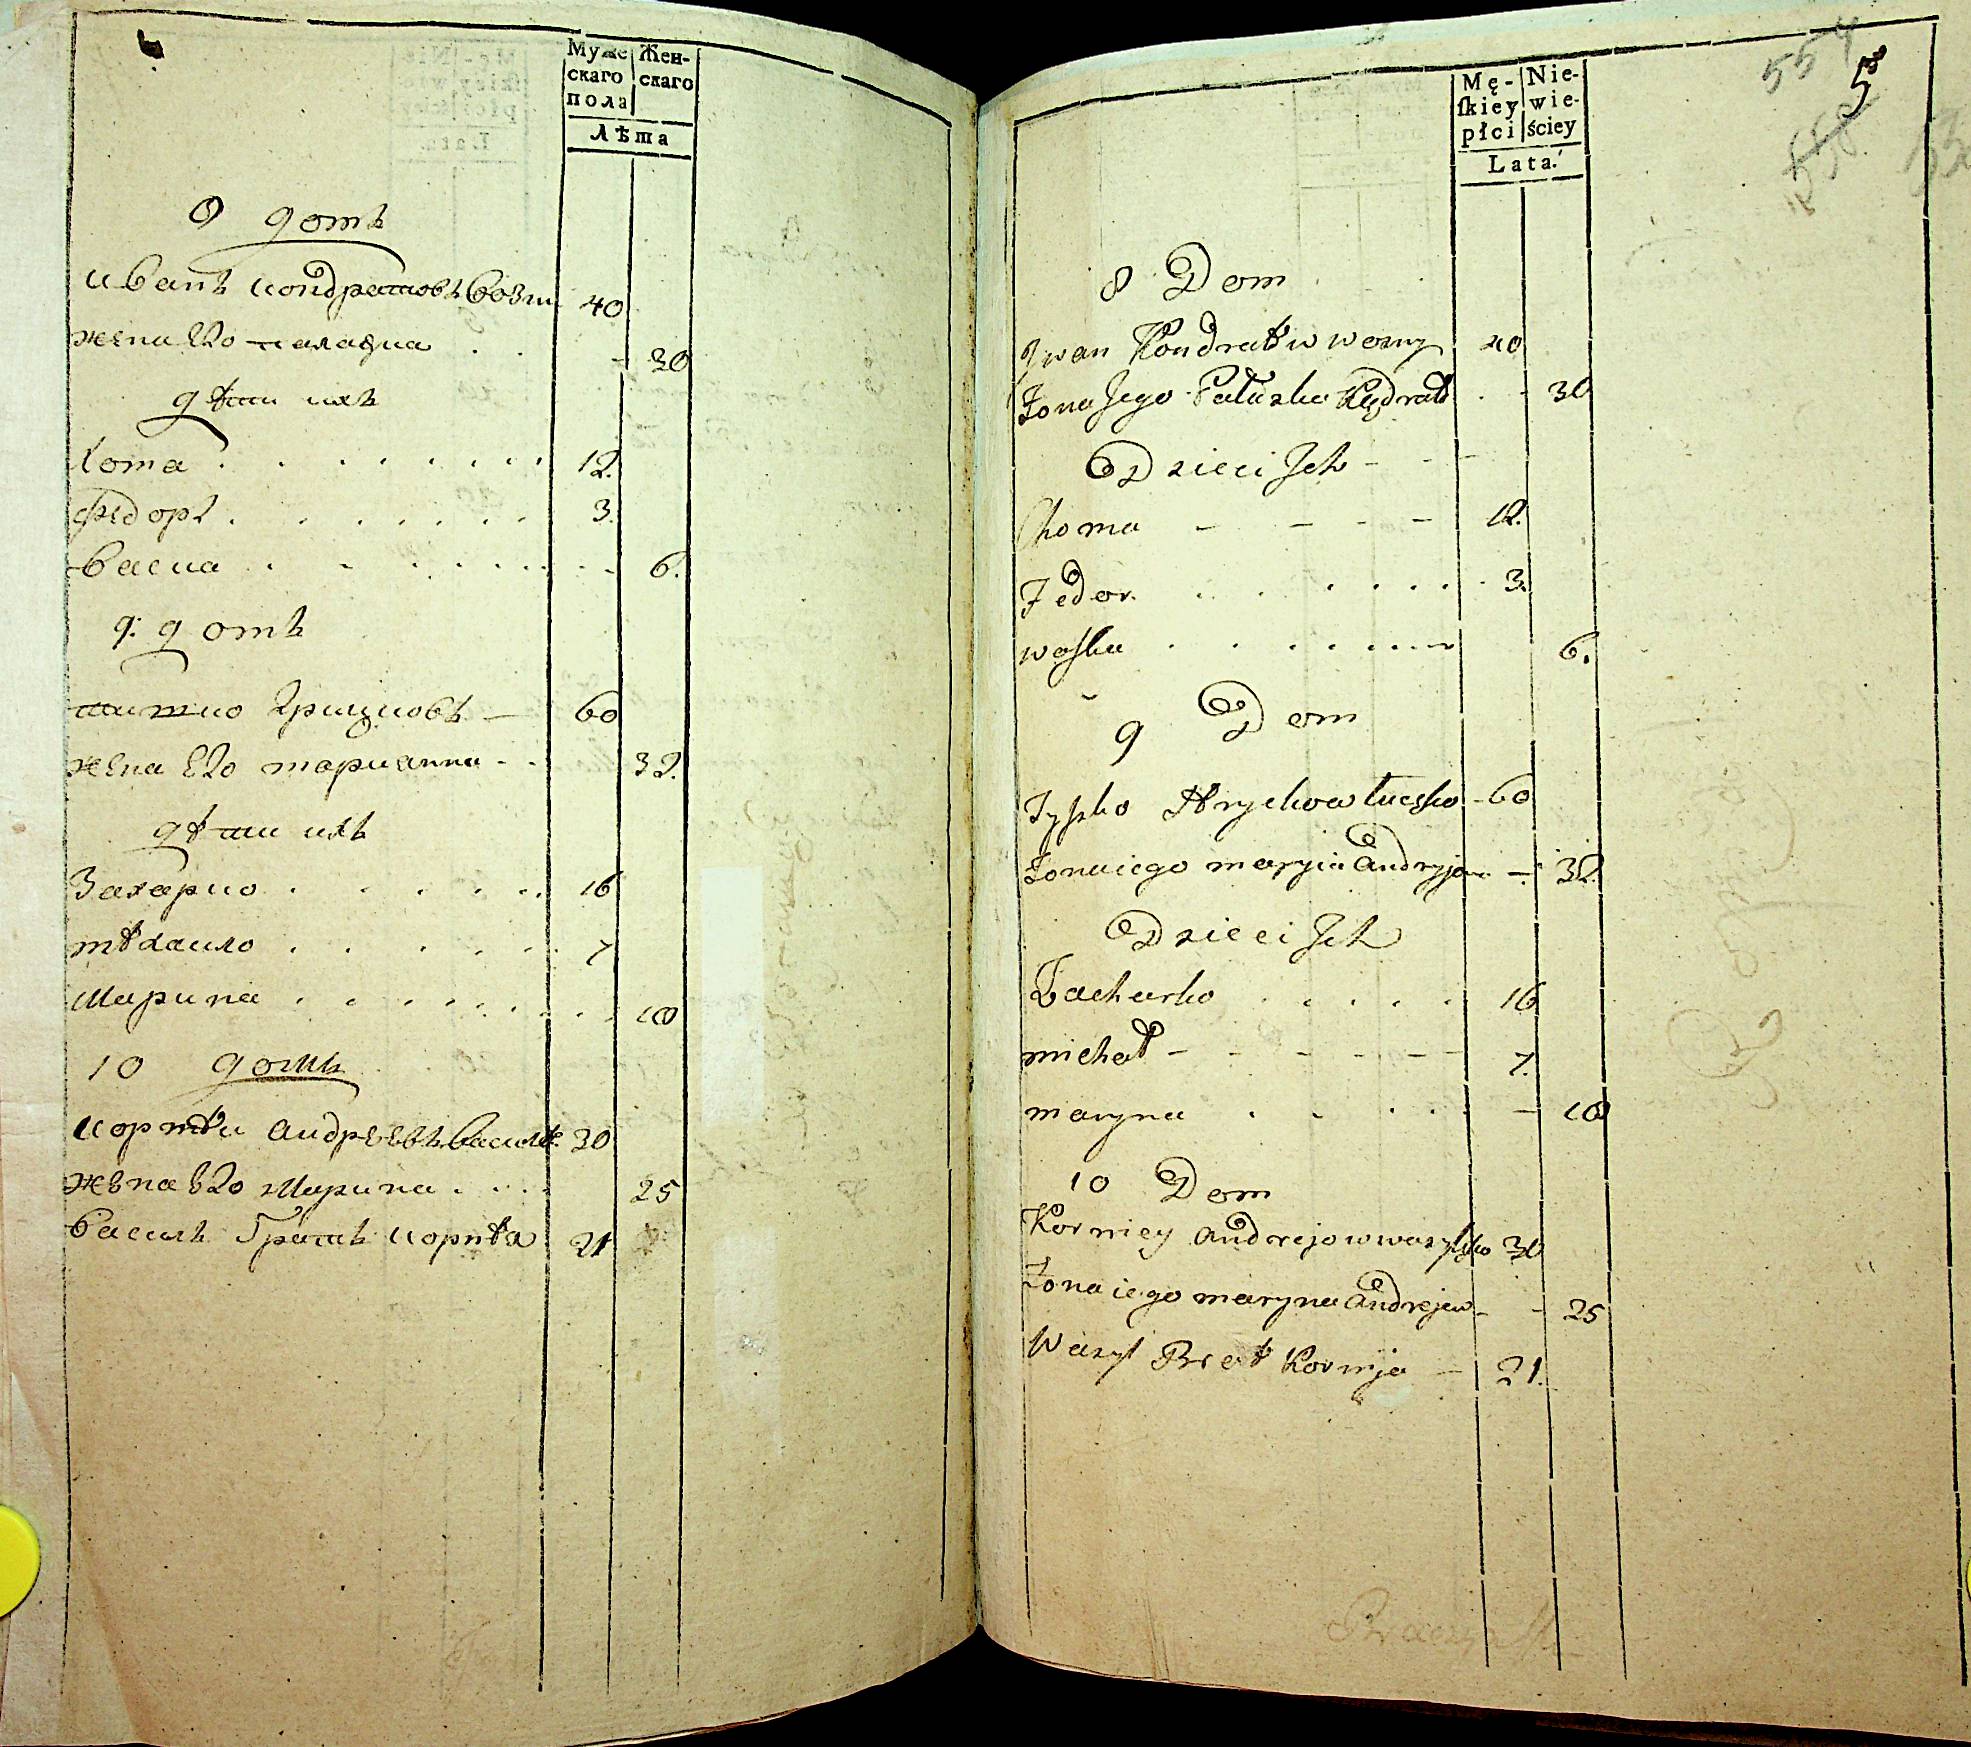 Муже Жен-
скаго скаго
пола
Лѣта
8 домъ
иванъ кондратовъ возни 40
жена его палашка 30
дѣти ихъ
хома 12.
федоръ 3.
васка 6.
9: домъ
тишко грицковъ 60
жена его марианна 32.
дѣти ихъ
Захарко 16
мѣхаило 7
Марина 10
10 домъ
корнѣи андреевъ василк. 30
жена его Марина 25
василь братъ корнѣя 21
554
5
558
Mę- Nie-
ſkiey wie-
płci ściey
Lata.
8 Dom
Jwan Kondratow wozny 40
Zona Jego Paluzka 30
Dzieci Jch
Choma 12.
Fedor 3.
waſka 6.
9 Dom
Tyſzko Hryckow 60
Zona iego maryia Andryjow 32.
Dzieci Jch
Zacharko 16
michał 7.
maryna 10
10 Dom
Korniey Andrejow wasylko 30
Zona iego maryna Andrejow 25
Wasyl Brat Kornija 21.